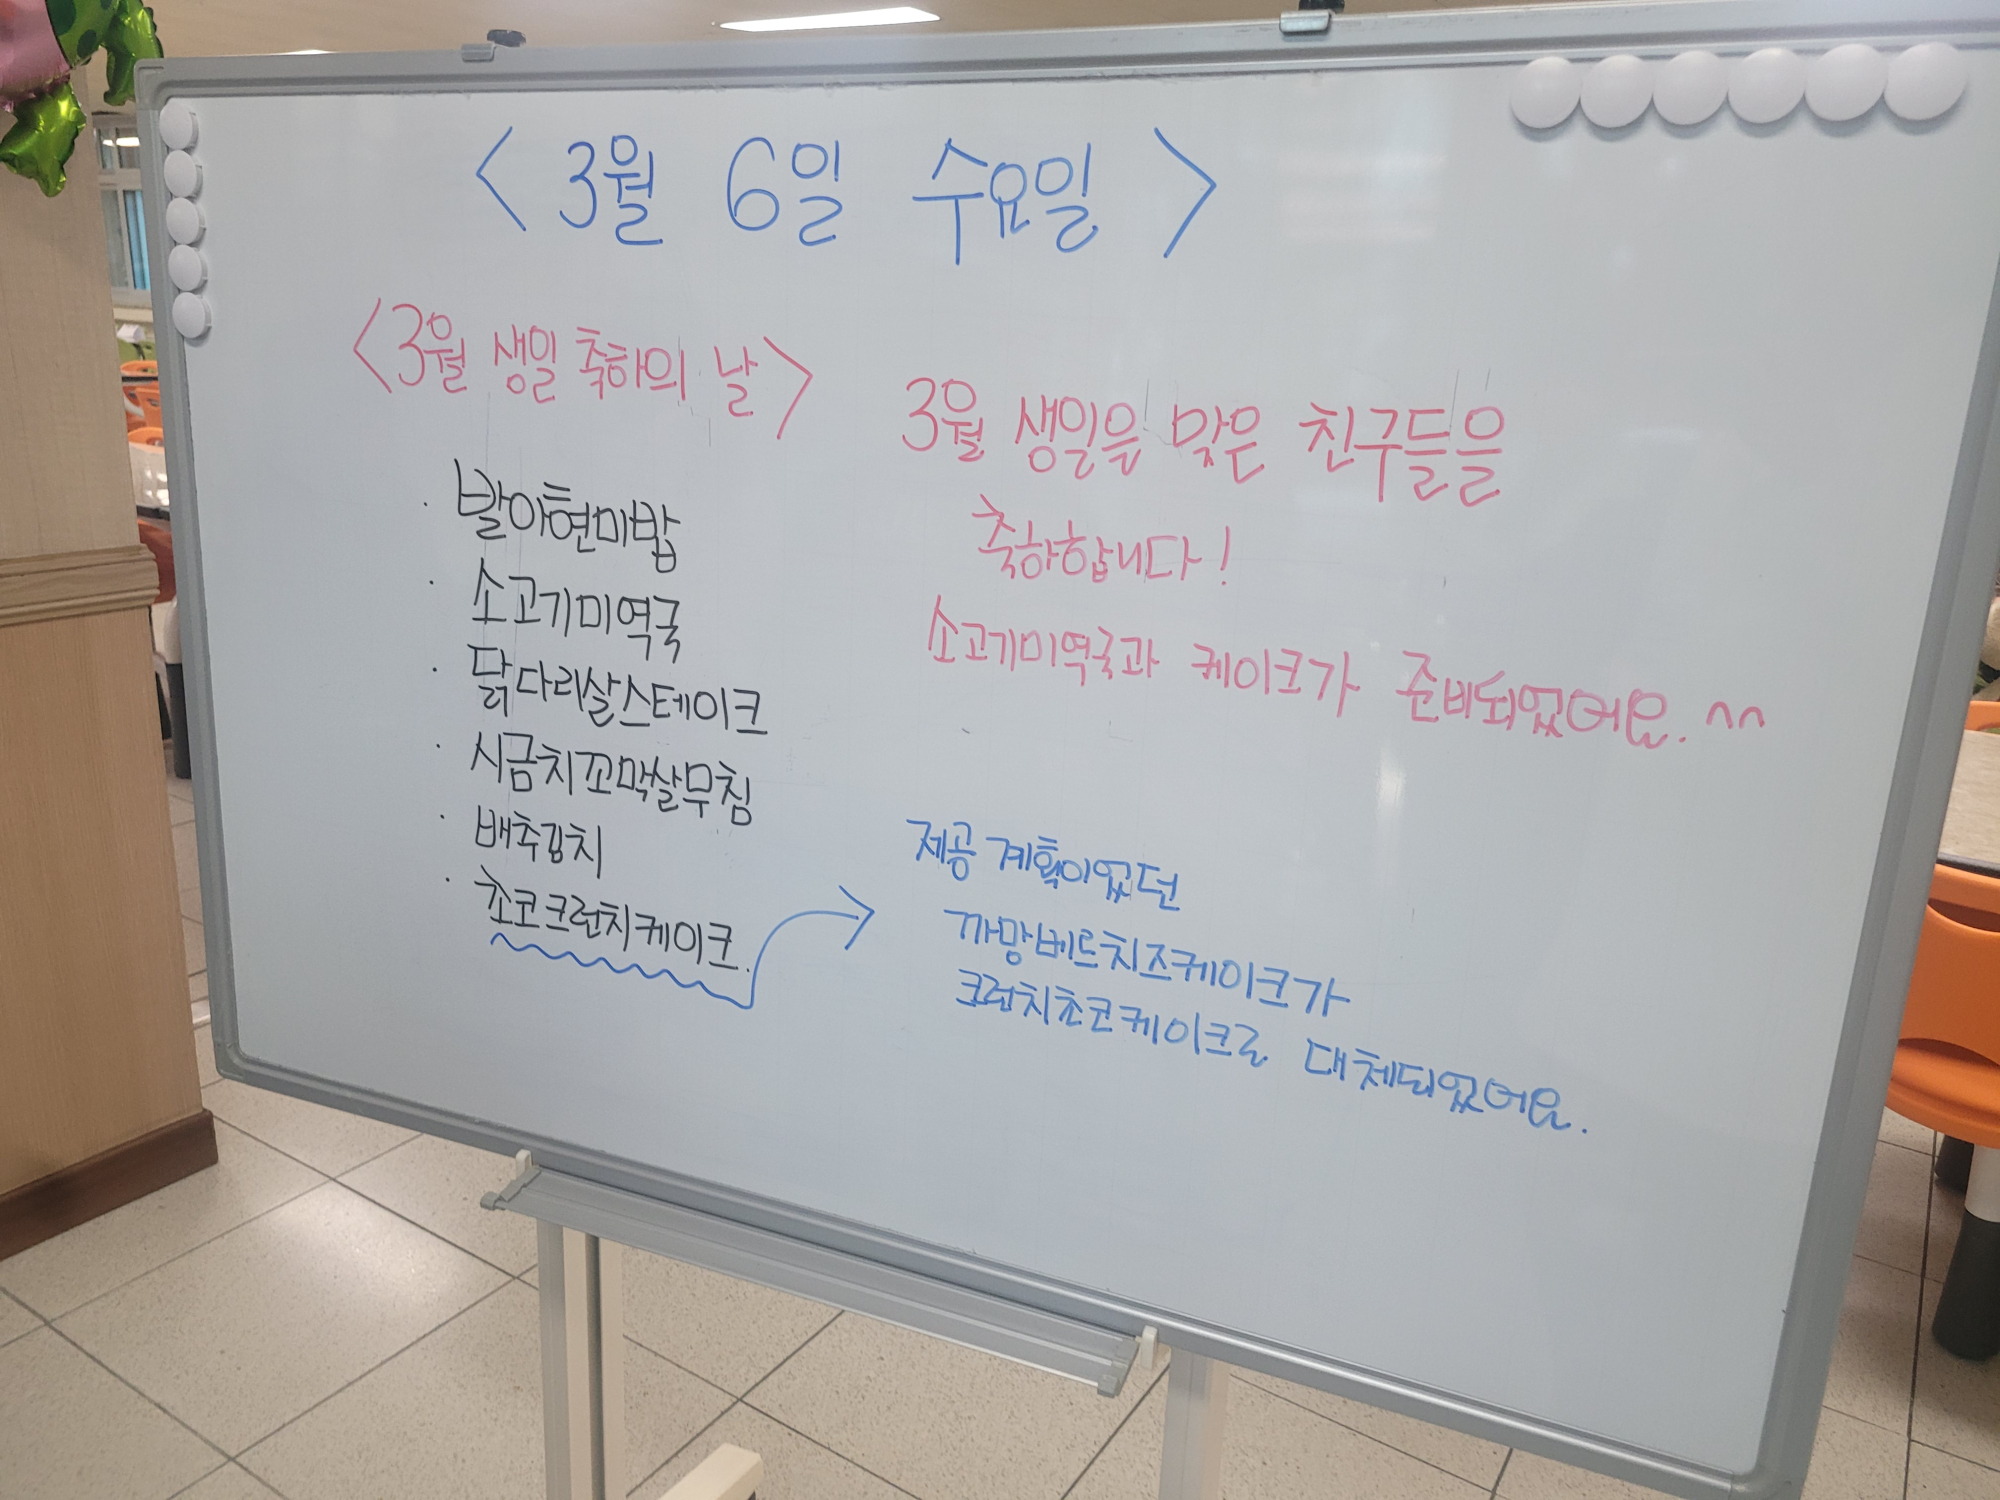 < 3월 6일 수요일 >
<3월 생일 축하의 날>
· 발아현미밥
· 소고기미역국
· 닭다리살스테이크
· 시금치꼬막살무침
· 배추김치
· 초코크런치케이크.
3월 생일을 맞은 친구들을
축하합니다!
소고기미역국과 케이크가 준비되었어요. ^^
제공 계획이었던
까망베르치즈케이크가
크런치초코케이크로 대체되었어요.